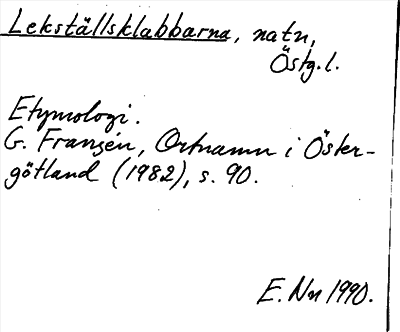 Lekställsklabbarna, natn,
Östg. l.
Etymologi.
G. Franzén, Ortnamn i Öster-
götland (1982), s. 90.
E. Nn 1990.